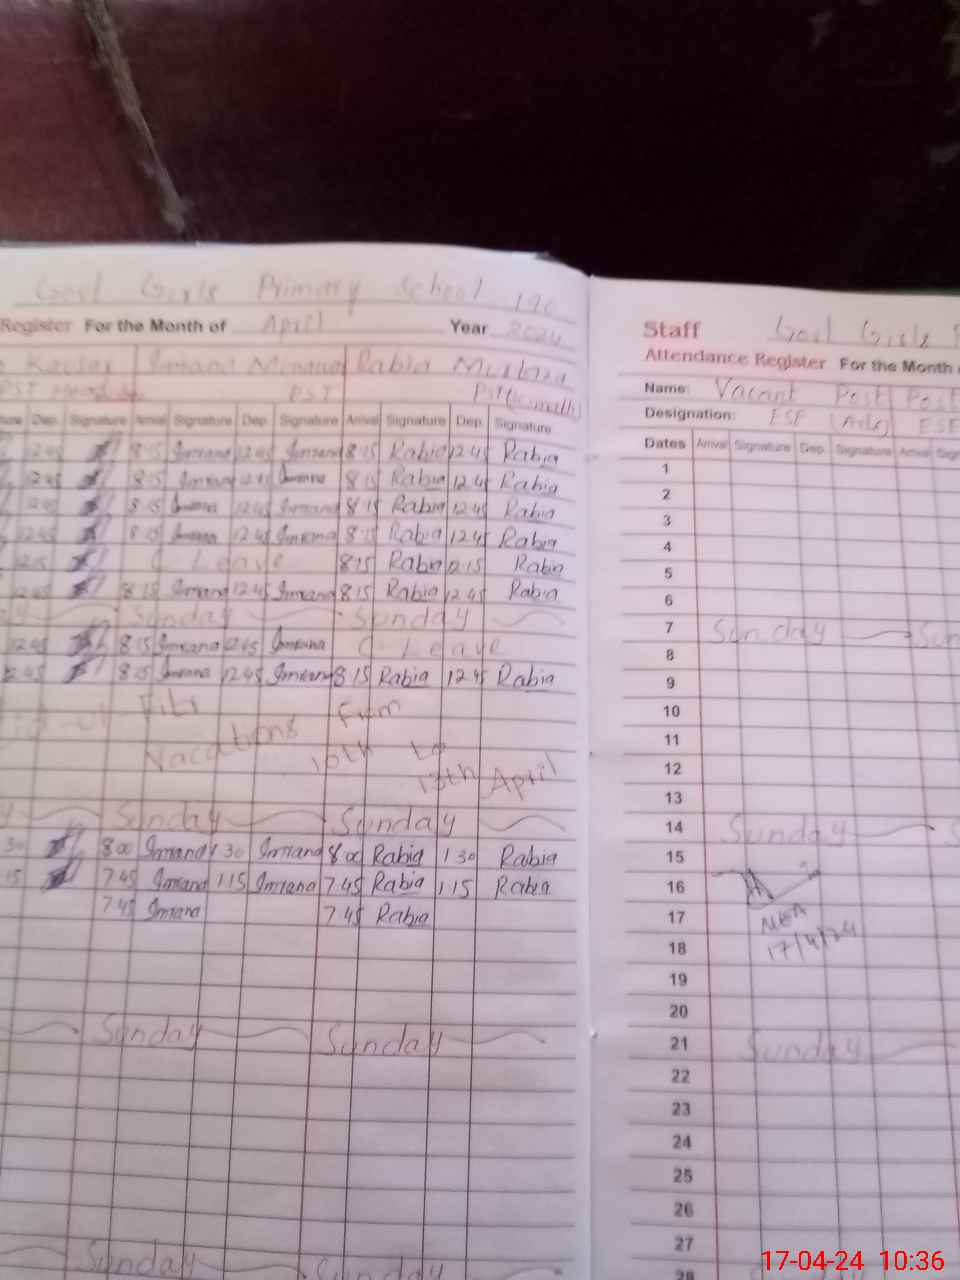 Govt Girls Primary School 190
Register For the Month of April Year 2024
Kausar Imrana Rabia
PST PST
Dep. Signature Arrival Signature Dep. Signature Arrival Signature Dep. Signature
12 45 8 15 Imrana 12 45 Imrana 8 15 Rabia 12 45 Rabia
12 45 8 15 Imrana 12 45 Imrana 8 15 Rabia 12 45 Rabia
12 45 8 15 Imrana 12 45 Imrana 8 15 Rabia 12 45 Rabia
12 45 8 15 Imrana 12 45 Imrana 8 15 Rabia 12 45 Rabia
12 15 C Leave 8 15 Rabia 12 15 Rabia
12 45 8 15 Imrana 12 45 Imrana 8 15 Rabia 12 45 Rabia
Sunday Sunday
12 45 8 15 Imrana 12 45 Imrana C Leave
12 45 8 15 Imrana 12 45 Imrana 8 15 Rabia 12 45 Rabia
Vacations From
10th to
13th April
Sunday Sunday
30 8 00 Imrana 1 30 Imrana 8 00 Rabia 1 30 Rabia
15 7 45 Imrana 1 15 Imrana 7 45 Rabia 1 15 Rabia
7 45 Imrana 7 45 Rabia
Sunday Sunday
Sunday Sunday
Staff Govt Girls
Attendance Register For the Month
Name: Vacant Post Post
Designation: ESE (Arts) ESE
Dates Arrival Signature Dep. Signature Arrival
1
2
3
4
5
6
7 Sunday
8
9
10
11
12
13
14 Sunday
15
16
17 MEA
17/4/24
18
19
20
21 Sunday
22
23
24
25
26
27
28
17-04-24 10:36